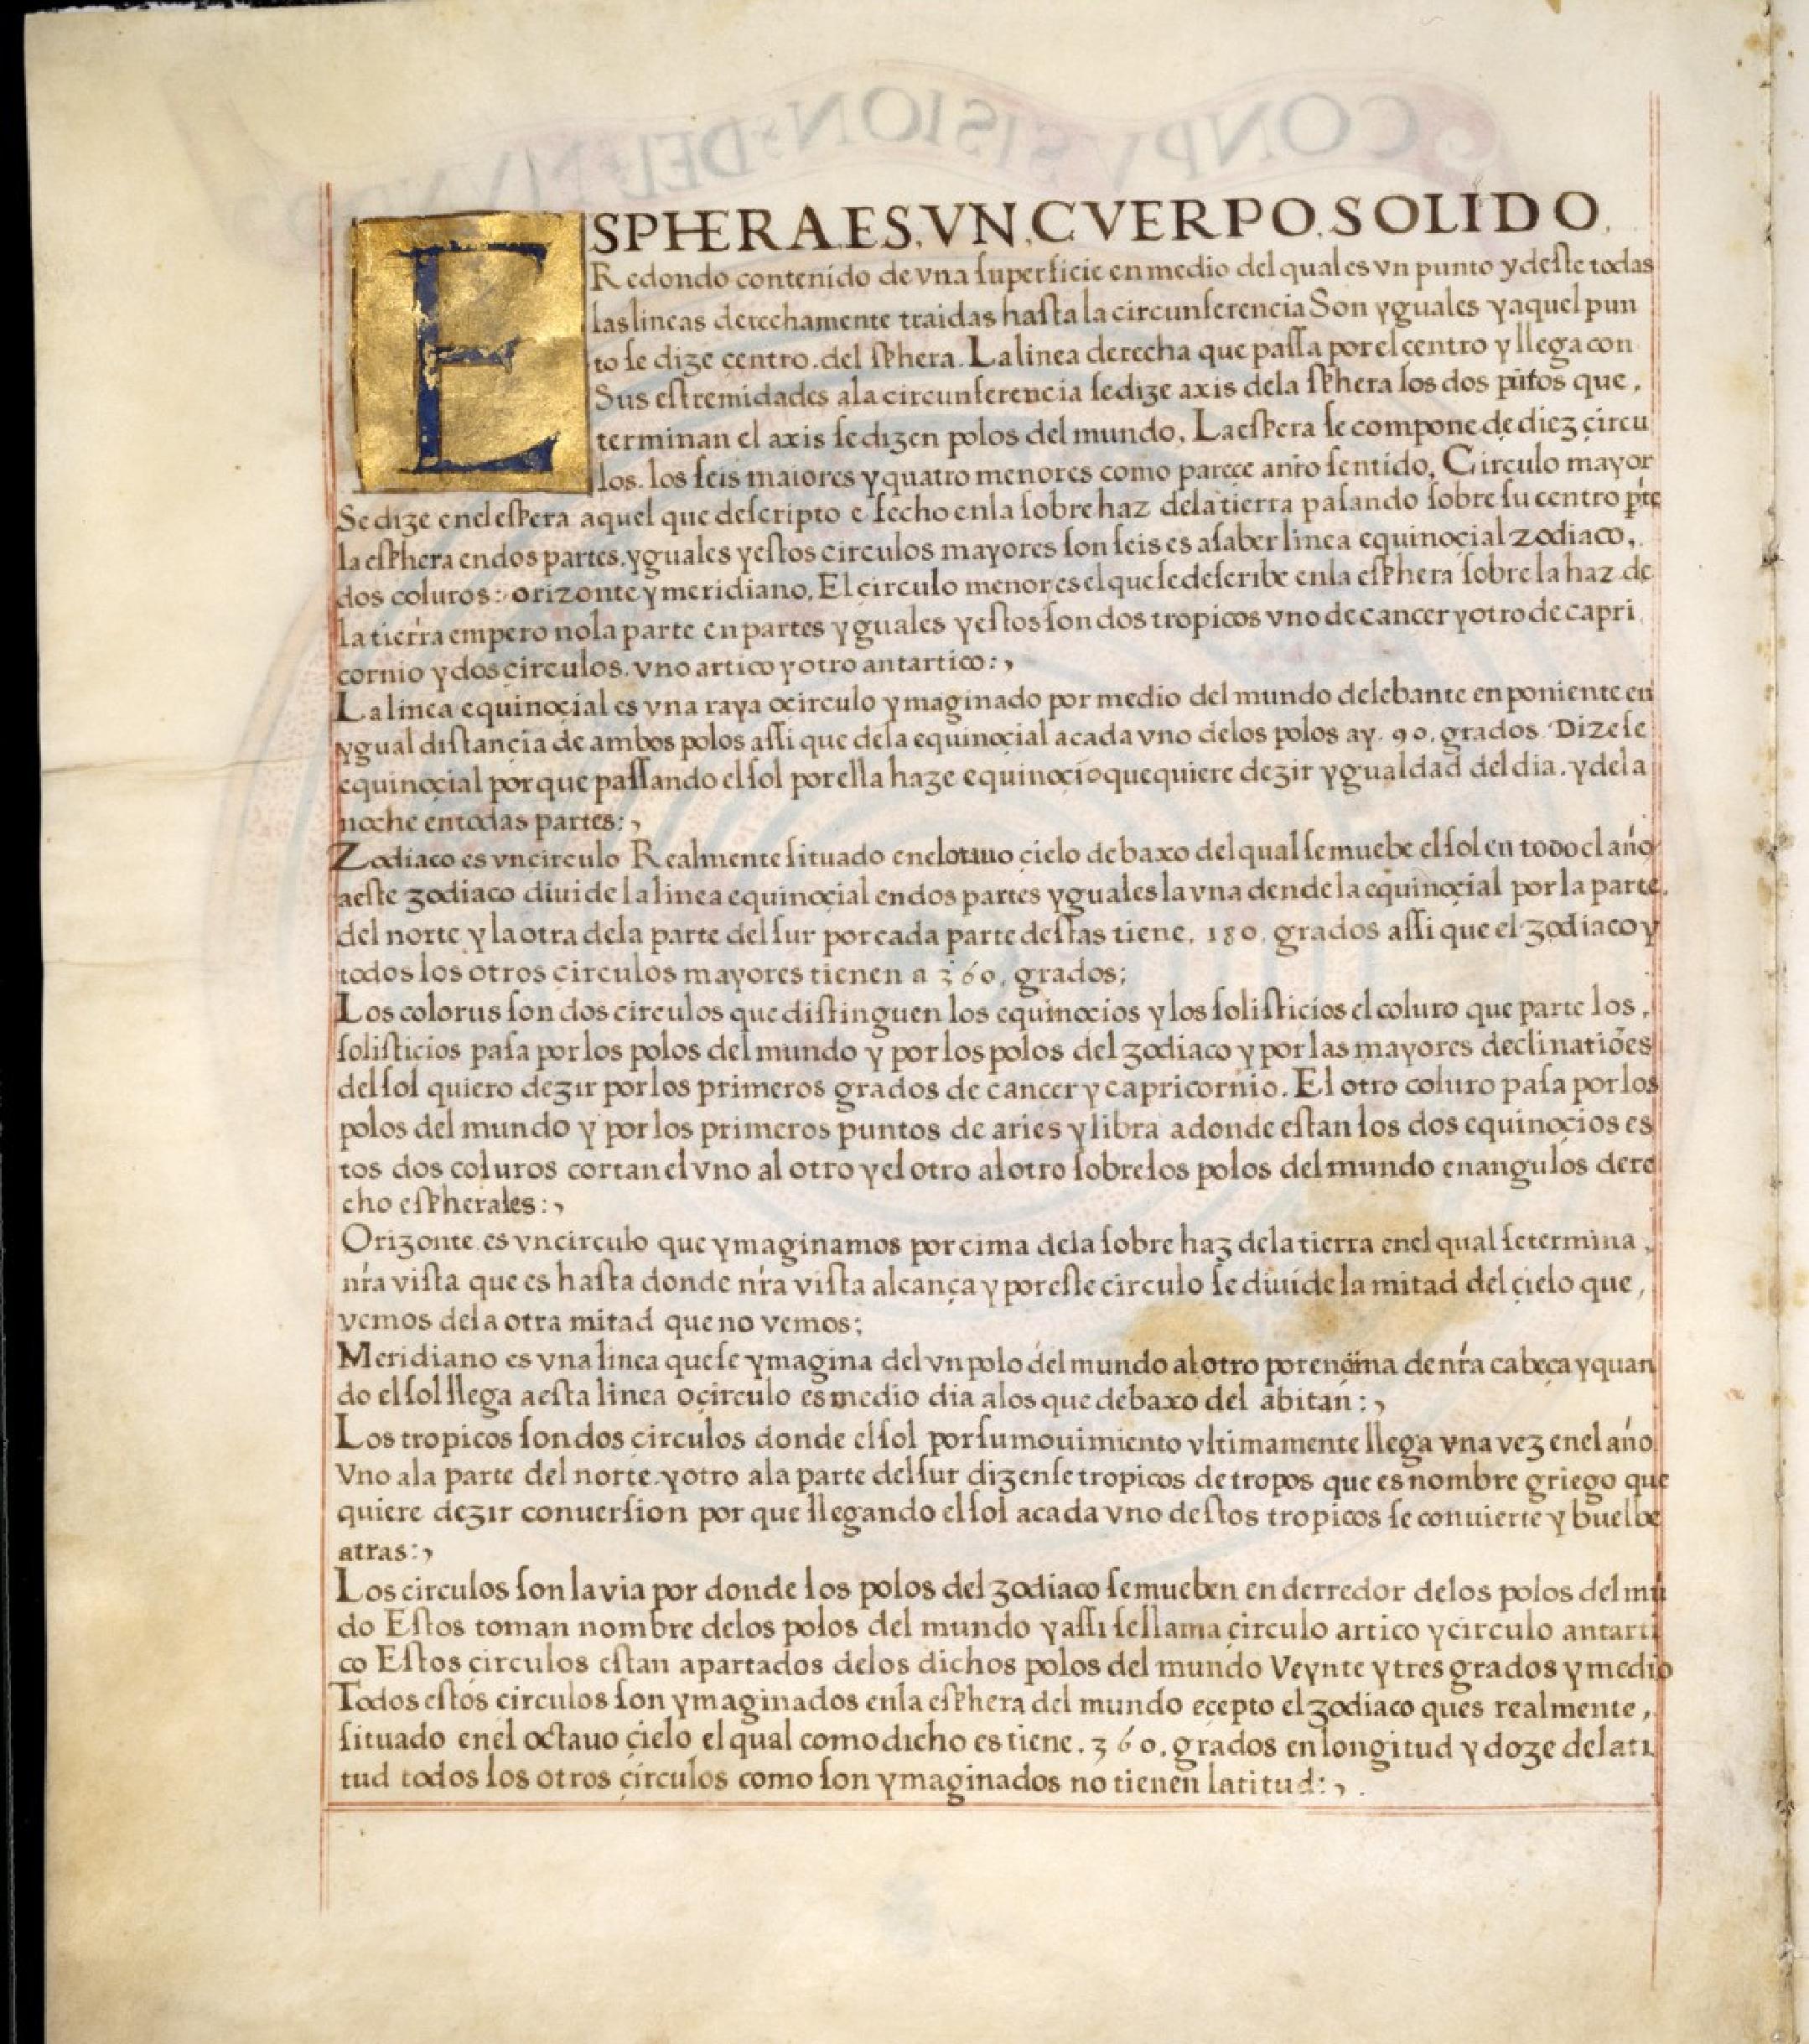 CONPVSISION DEL MVNDO
ESPHERA.ES.VN.CVERPO.SOLIDO.
Redondo contenido de vna ſuperficie en medio del qual es vn punto y deſte todas
las lineas derechamente traidas haſta la circunferencia Son yguales y aquel pun
to ſe dize centro. del ſphera. La linea derecha que paſſa por el centro y llega con
Sus eſtremidades ala circunferencia ſe dize axis dela ſphera los dos pūtos que,
terminan el axis ſe dizen polos del mundo. La eſpera ſe compone de diez çircu
los. los ſeis maiores y quatro menores como pareçe an̄ro ſentido. Circulo mayor
Se dize enel eſpera aquel que deſcripto e fecho enla ſobre haz dela tierra paſando ſobre ſu centro p̱te
la eſphera en dos partes. yguales y eſtos circulos mayores ſon ſeis es aſaber linea equinoçial zodiaco,
dos coluros: orizonte y meridiano. El çirculo menor es el que ſe deſcribe enla eſphera ſobre la haz de
la tierra empero nola parte en partes yguales y eſtos ſon dos tropicos vno de cancer y otro de capri
cornio y dos çirculos. vno artico y otro antartico:,
La linea equinoçial es vna raya oçirculo ymaginado por medio del mundo delebante en poniente en
ygual diſtançia de ambos polos aſſi que dela equinoçial acada vno delos polos ay. 90. grados Dizeſe
equinoçial por que paſſando el ſol por ella haze equinoçio que quiere dezir ygualdad del dia. y dela
noche en todas partes:,
Zodiaco es vn circulo Realmente ſituado enel otauo çielo debaxo del qual ſe muebe el ſol en todo el año
aeſte zodiaco diuide la linea equinoçial en dos partes yguales la vna dende la equinoçial por la parte.
del norte y la otra dela parte del ſur por cada parte deſtas tiene. 180. grados aſſi que el zodiaco y
todos los otros circulos mayores tienen a 360. grados;
Los colorus ſon dos circulos que diſtinguen los equinoçios y los ſoliſticios el coluro que parte los,
ſoliſticios paſa por los polos del mundo y por los polos del zodiaco y por las mayores declinatiōes
del ſol quiero dezir por los primeros grados de cancer y capricornio. El otro coluro paſa por los
polos del mundo y por los primeros puntos de aries y libra adonde eſtan los dos equinoçios es
tos dos coluros cortan el vno al otro y el otro al otro ſobre los polos del mundo en angulos dere
cho eſpherales:,
Orizonte es vn circulo que ymaginamos por cima dela ſobre haz dela tierra enel qual ſe termina,
nr̄a viſta que es haſta donde nr̄a viſta alcança y por eſte circulo ſe diuide la mitad del çielo que,
vemos dela otra mitad que no vemos;
Meridiano es vna linea que ſe ymagina del vn polo del mundo al otro por ençima de nr̄a cabeça y quan
do el ſol llega aeſta linea oçirculo es medio dia alos que debaxo del abitan:,
Los tropicos ſon dos circulos donde el ſol por ſu mouimiento vltimamente llega vna vez enel año
Vno ala parte del norte. y otro ala parte del ſur dizenſe tropicos de tropos que es nombre griego que
quiere dezir conuerſion por que llegando el ſol acada vno deſtos tropicos ſe conuierte y buelbe
atras:,
Los circulos ſon la via por donde los polos del zodiaco ſe mueben en derredor delos polos del mū
do Eſtos toman nombre delos polos del mundo y aſſi ſe llama çirculo artico y circulo antarti
co Eſtos çirculos eſtan apartados delos dichos polos del mundo Veynte y tres grados y medio
Todos eſtos circulos ſon ymaginados enla eſphera del mundo ecepto el zodiaco ques realmente,
ſituado enel octauo çielo el qual como dicho es tiene. 360. grados en longitud y doze de lati
tud todos los otros çirculos como ſon ymaginados no tienen latitud:,.